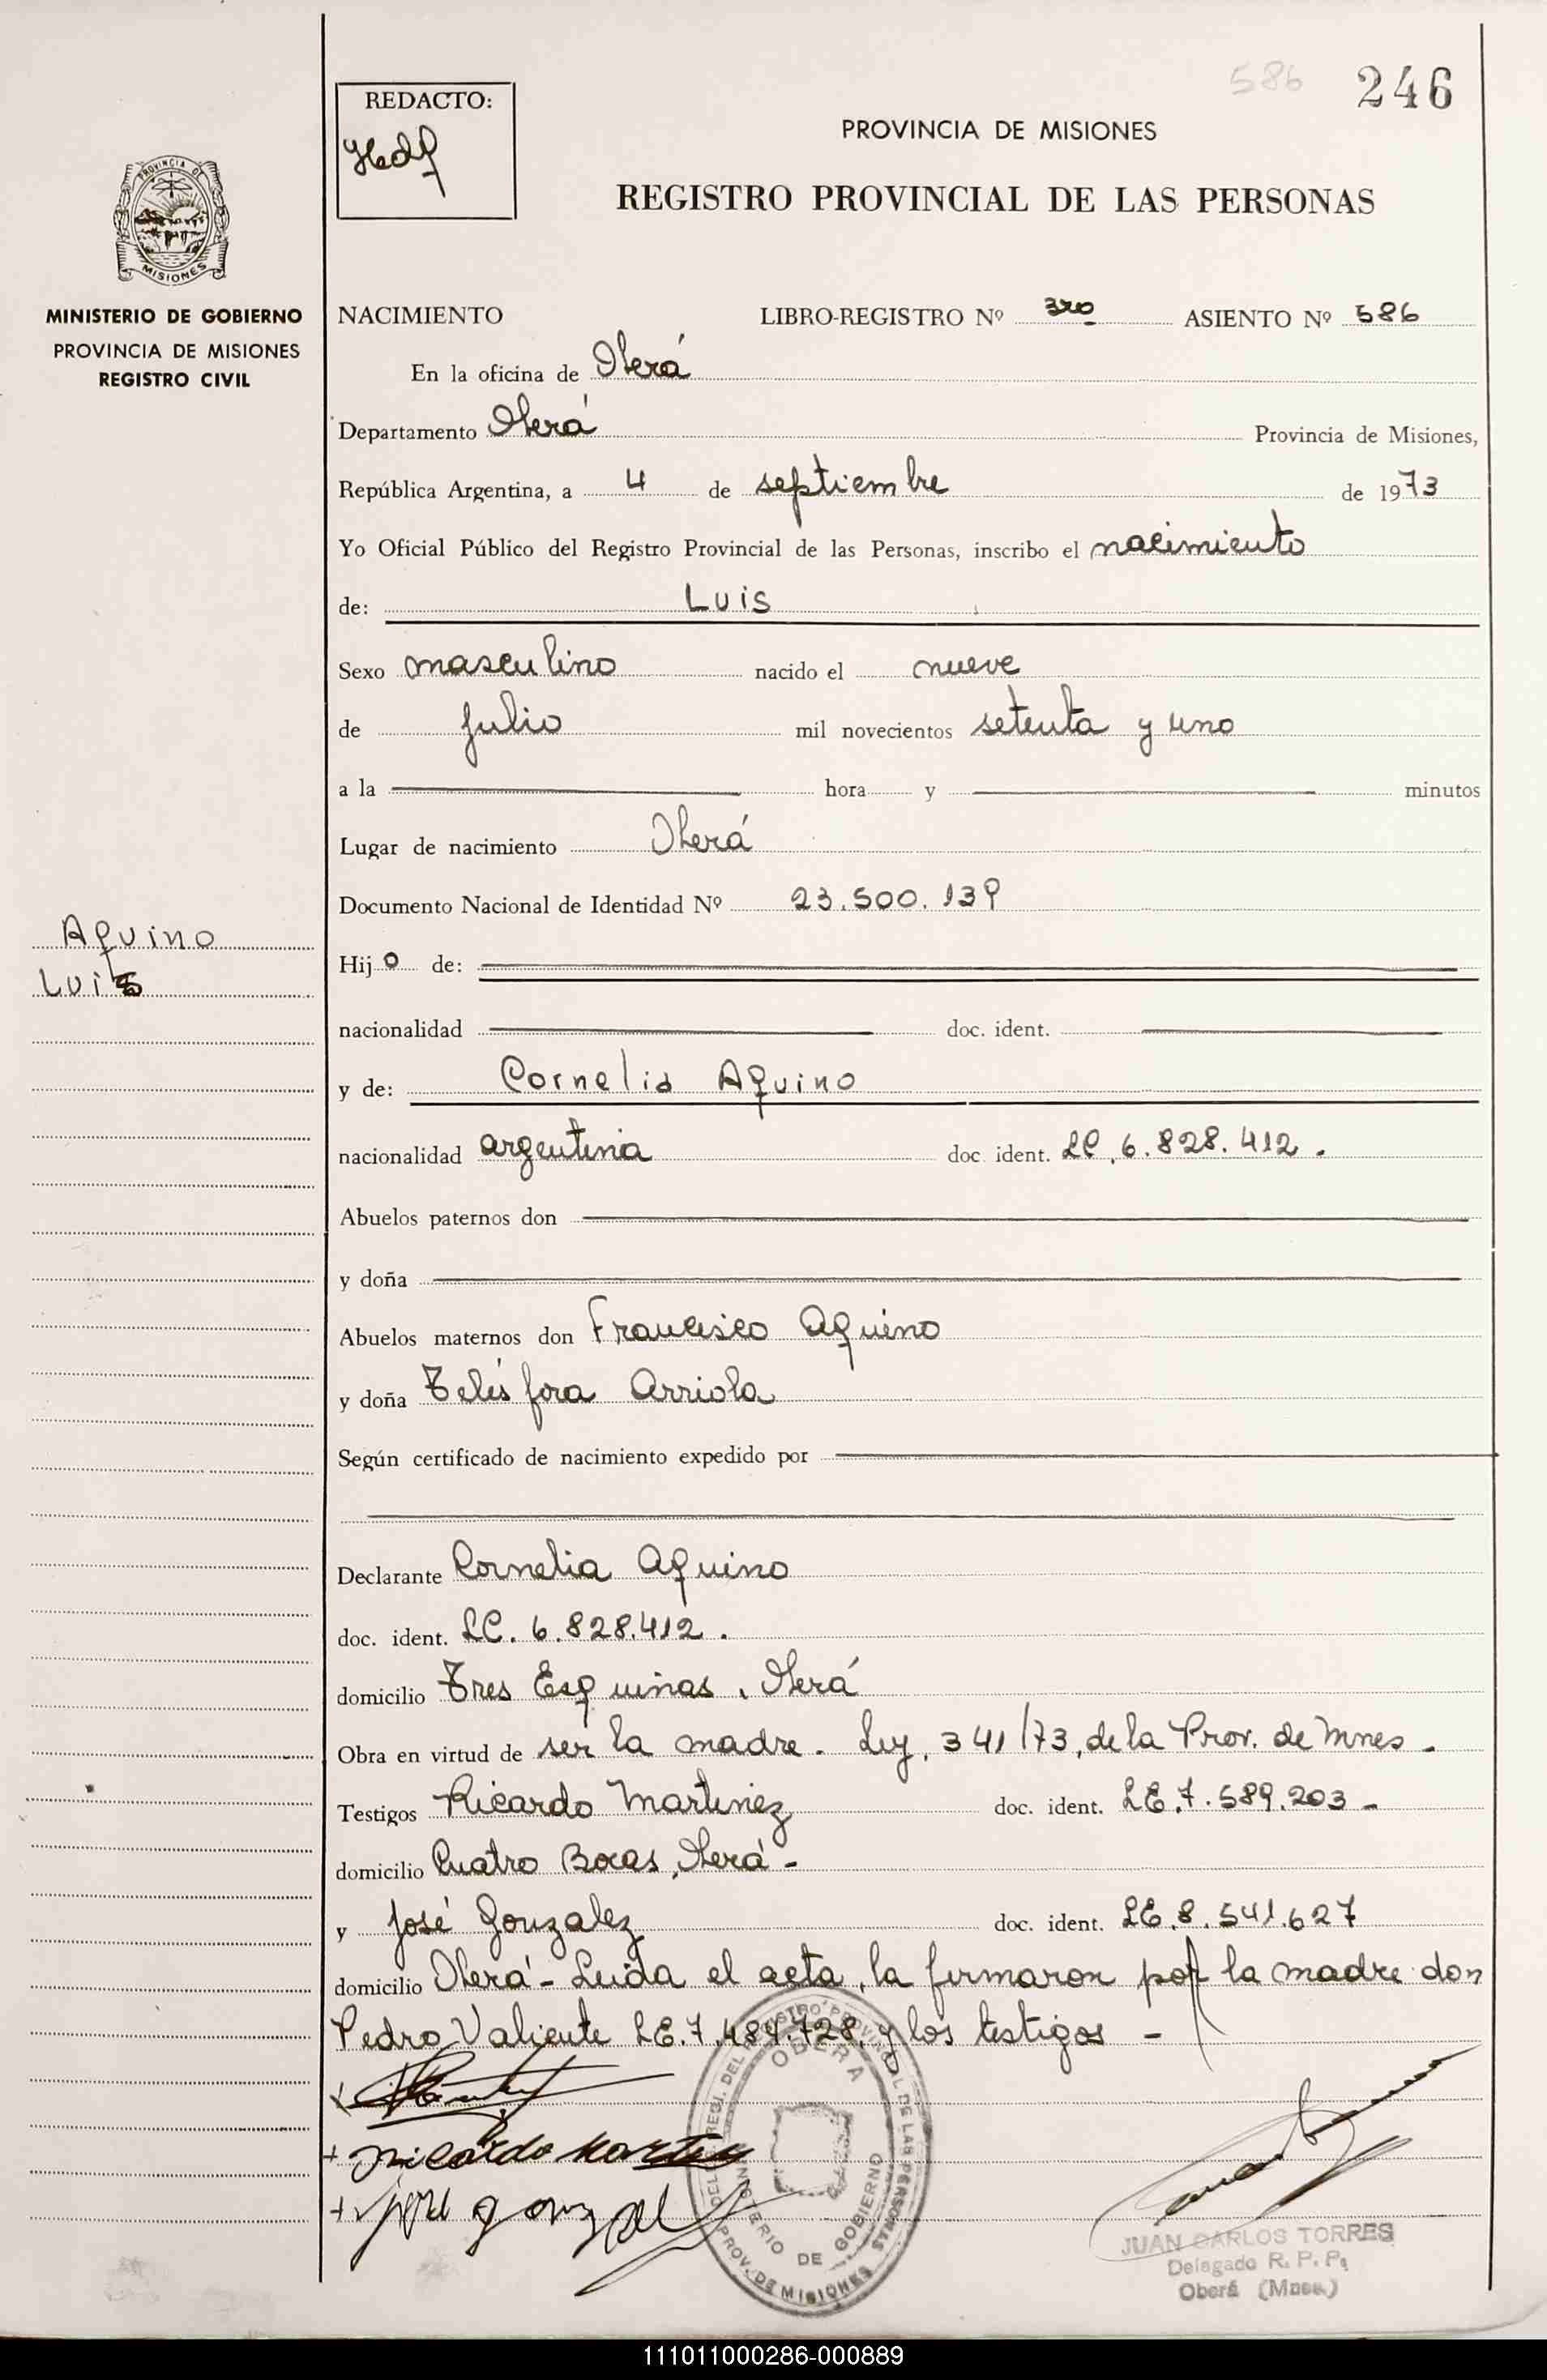 586 246
REDACTO:
PROVINCIA DE MISIONES
REGISTRO PROVINCIAL DE LAS PERSONAS
PROVINCIA DE
MISIONES
MINISTERIO DE GOBIERNO
PROVINCIA DE MISIONES
REGISTRO CIVIL
NACIMIENTO LIBRO-REGISTRO Nº 3ro ASIENTO Nº 586
En la oficina de Oberá
Departamento Oberá Provincia de Misiones,
República Argentina, a 4 de septiembre de 1973
Yo Oficial Público del Registro Provincial de las Personas, inscribo el nacimiento
de: Luis
Sexo masculino nacido el nueve
de julio mil novecientos setenta y uno
a la hora y minutos
Lugar de nacimiento Oberá
Documento Nacional de Identidad Nº 23.500.139
Aquino
Luis
Hijo de:
nacionalidad doc. ident.
y de: Cornelia Aquino
nacionalidad argentina doc. ident. LC. 6.828.412.
Abuelos paternos don
y doña
Abuelos maternos don Francisco Aquino
y doña Telésfora Arriola
Según certificado de nacimiento expedido por
Declarante Cornelia Aquino
doc. ident. LC. 6.828.412.
domicilio Tres Esquinas, Oberá
Obra en virtud de ser la madre. Ley. 341/73, de la Prov. de Mnes.
Testigos Ricardo Martinez doc. ident. LE.7.589.203-
domicilio Cuatro Bocas, Oberá-
y José Gonzalez doc. ident. LE.8.541.627
domicilio Oberá- Leida el acta, la firmaron por la madre don
Pedro Valiente LE.7.484.728. y los testigos -
OBERA
MINISTERIO DE GOBIERNO
PROV. DE MISIONES
JUAN CARLOS TORRES
Delegado R. P. P.
Oberá (Mnes.)
111011000286-000889